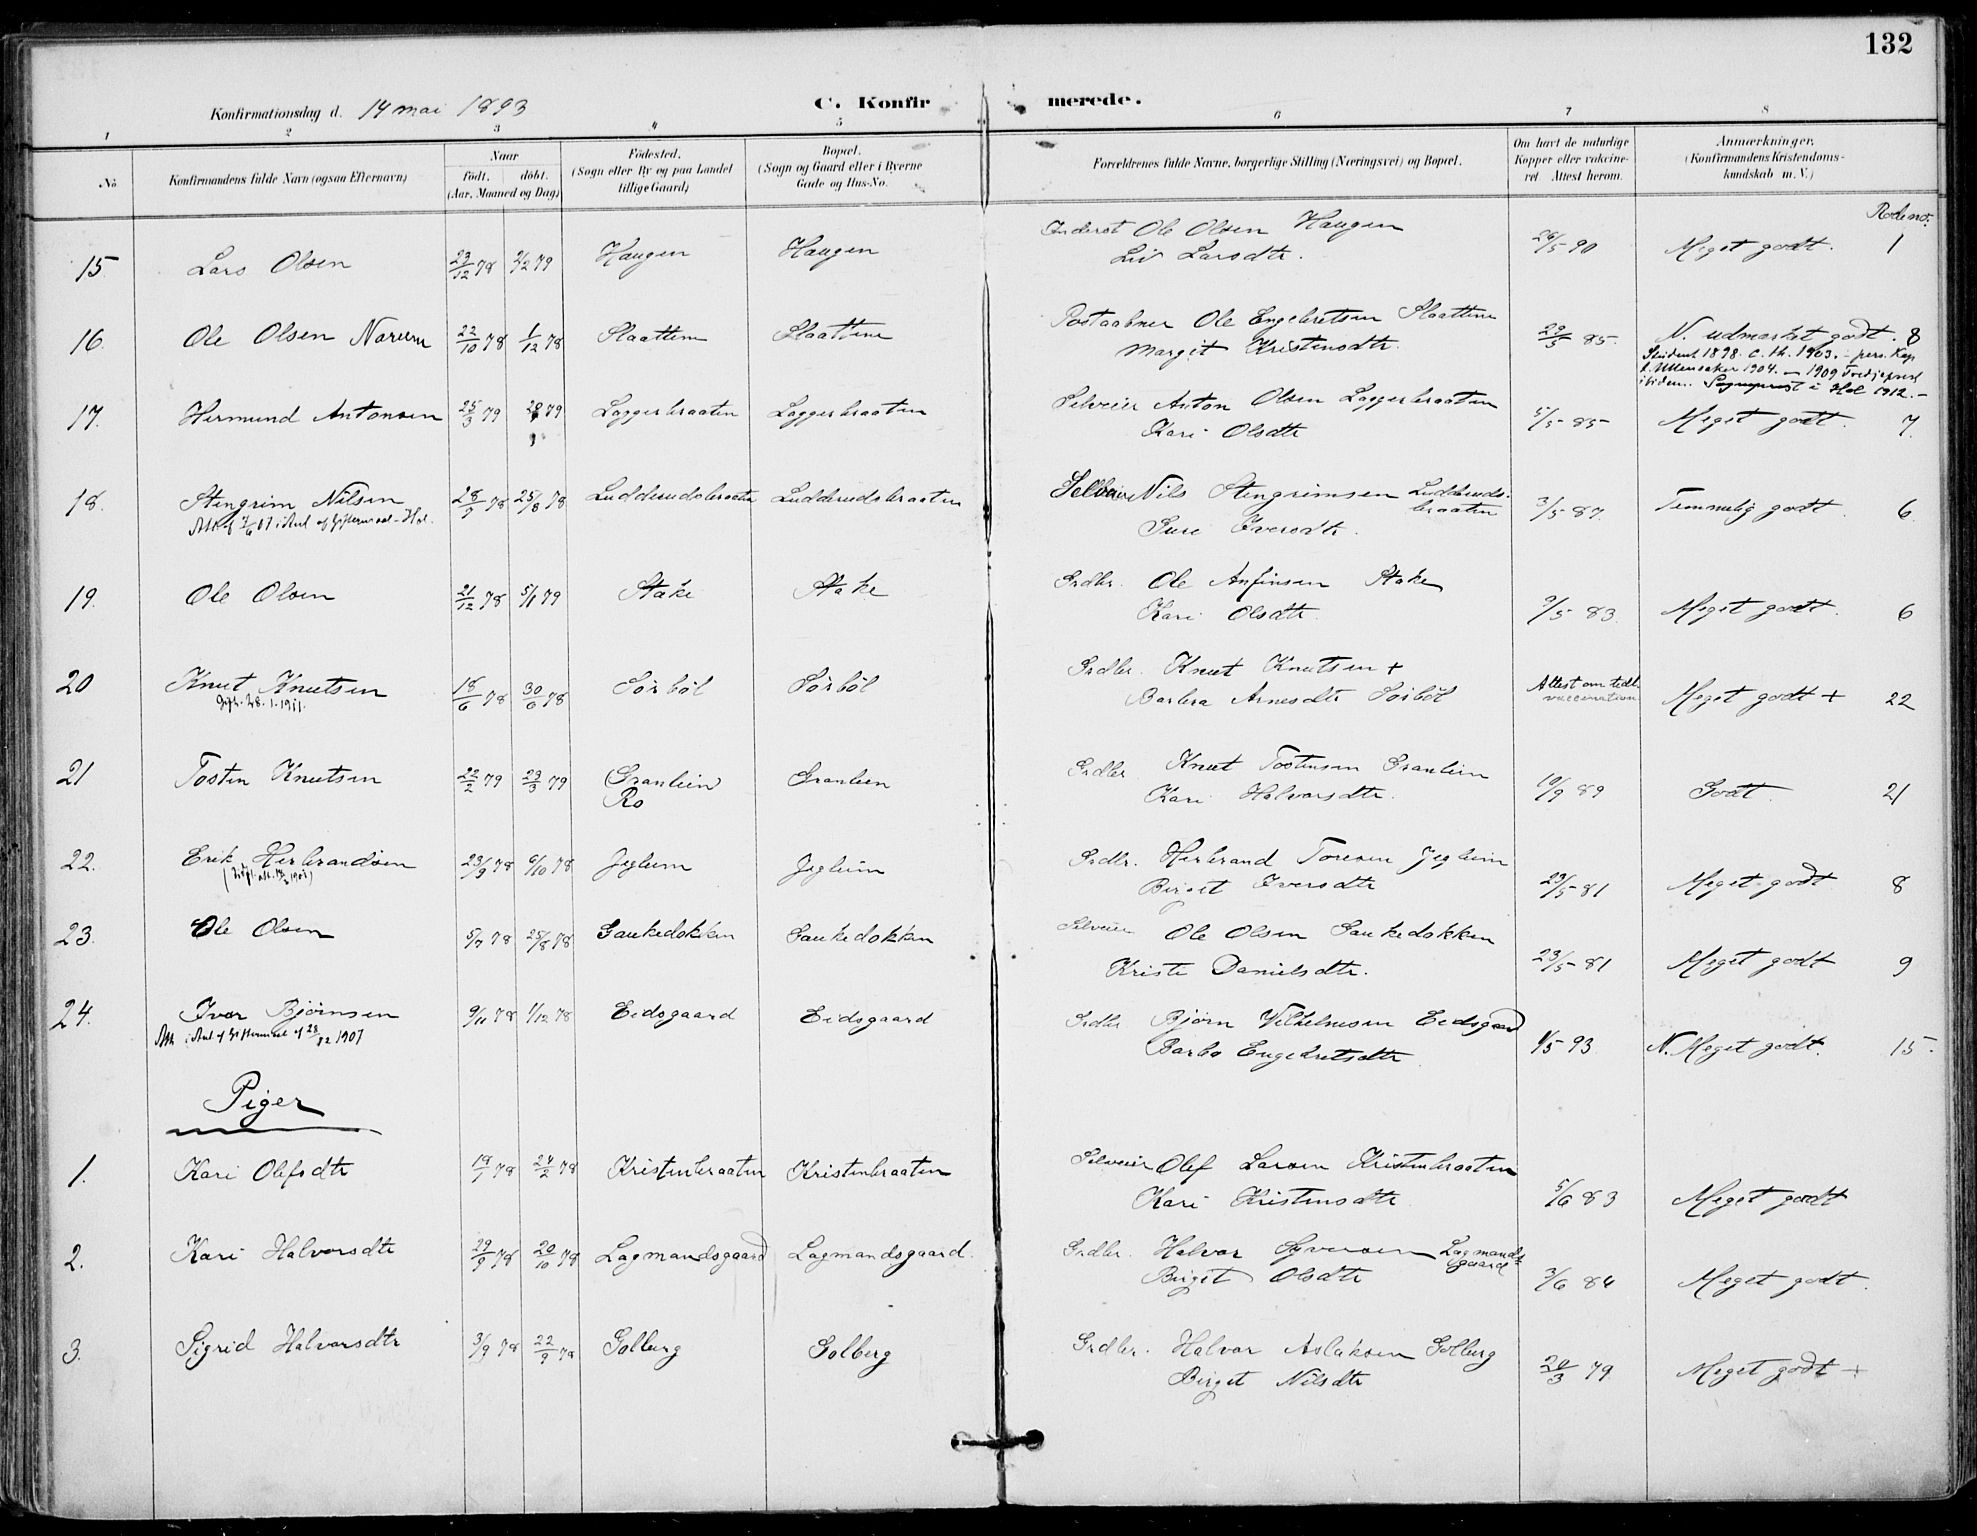 132
Konfirmationsdag d. 14 mai 1893
C. Konfirmerede.
1 2 3 4 5 6 7 8
No
Konfirmandens fulde Navn (ogsaa Efternavn)
Naar
födt. döbt.
(Aar, Maaned og Dag)
Födested.
(Sogn eller By og paa Landet
tillige Gaard)
Bopæl.
(Sogn og Gaard eller i Byerne
Gade og Hus-No.
Forældrenes fulde Navne, borgerlige Stilling (Næringsvei) og Bopæl.
Om havt de naturlige
Kopper eller vakcine-
ret Attest herom.
Anmærkninger.
(Konfirmandens Kristendoms-
kundskab m. V.)
Rode no.
15 Lars Olsen 23/12 78 2/2 79 Haugen Haugen Inderst Ole Olsen Haugen 26/5 90 Meget godt. 1
Liv Larsdtr.
16. Ole Olsen Nareim 22/10 78 1/12 78 Slaatten Slaatten Postaabner Ole Engebretsen Slaatten 29/5 85. N. udmærket godt. 8
Margit Kristensdtr.
Student 1898. c. th. 1903. - pers. Kap.
1904. - 1909
ibidem. Sogneprest i Hol 1912. -
17. Hermund Antonsen 25/3 79 79 Laggerbraaten Laggerbraaten Selveier Anton Olsen Laggerbraaten 5/5 85 Meget godt. 7.
Kari Olsdtr
18. Stengrim Nilsen 28/7 78 25/8 78 Ludderudsbraaten Ludderudsbraaten Selveier Nils Stengrimsen Ludderuds- 3/5 87. Temmelig godt. 6.
braaten
Guri Iversdtr.
19. Ole Olsen 21/12 78 5/1 79 Stake Stake Grdbr. Ole Anfinsen Stake 9/5 83. Meget godt. 6
Kari Olsdtr.
20 Knut Knutsen 18/6 78 30/6 78 Sörböl Sörböl Grdbr. Knut Knutsen + Attest om Meget godt + 22
Gift. 28.1.1911. Barbra Arnesdtr Sörböl vaccination
21 Tosten Knutsen 22/2 79 23/3 79 Granlien Granlien Grdbr Knut Tostensen Granlien 10/9 89 Godt. 21
Ro
Kari Halvorsdtr.
22. Erik Herbrandsen 23/9 78 6/10 78 Jegleim Jegleim Grdbr. Herbrand Toresen Jegleim 23/5 81 Meget godt 8
Birgit Iversdtr
23. Ole Olsen 5/7 78 25/8 78 Gaukedokken Gaukedokken Selveier Ole Olsen Gaukedokken 23/5 81 Meget godt 9
Kristi Danielsdtr.
24. Ivar Bjørnsen 9/11 78 1/12 78 Eidsgaard Eidsgaard Grdbr Bjørn Vilhelmsen Eidsgaard 1/5 93. N. Meget godt. 15
Barbo Engebretsdtr
Piger
1. Kari Olefsdtr 18/1 78 24/2 78 Kristenbraaten Kristenbraaten Selveier Olef Larsen Kristenbraaten 5/6 83 Meget godt
Kari Kristensdtr.
2. Kari Halvorsdtr 29/9 78 20/10 78 Lagmandsgaard Lagmandsgaard. Grdbr. Halvor Syversen Lagmands- 3/6 84 Meget godt.
gaard
Birgit Olsdtr
3. Sigrid Halvorsdtr 3/9 78 22/9 78 Golberg Golberg Grdbr. Halvor Aslaksen Golberg 20/3 79 Meget godt +
Birgit Nilsdtr